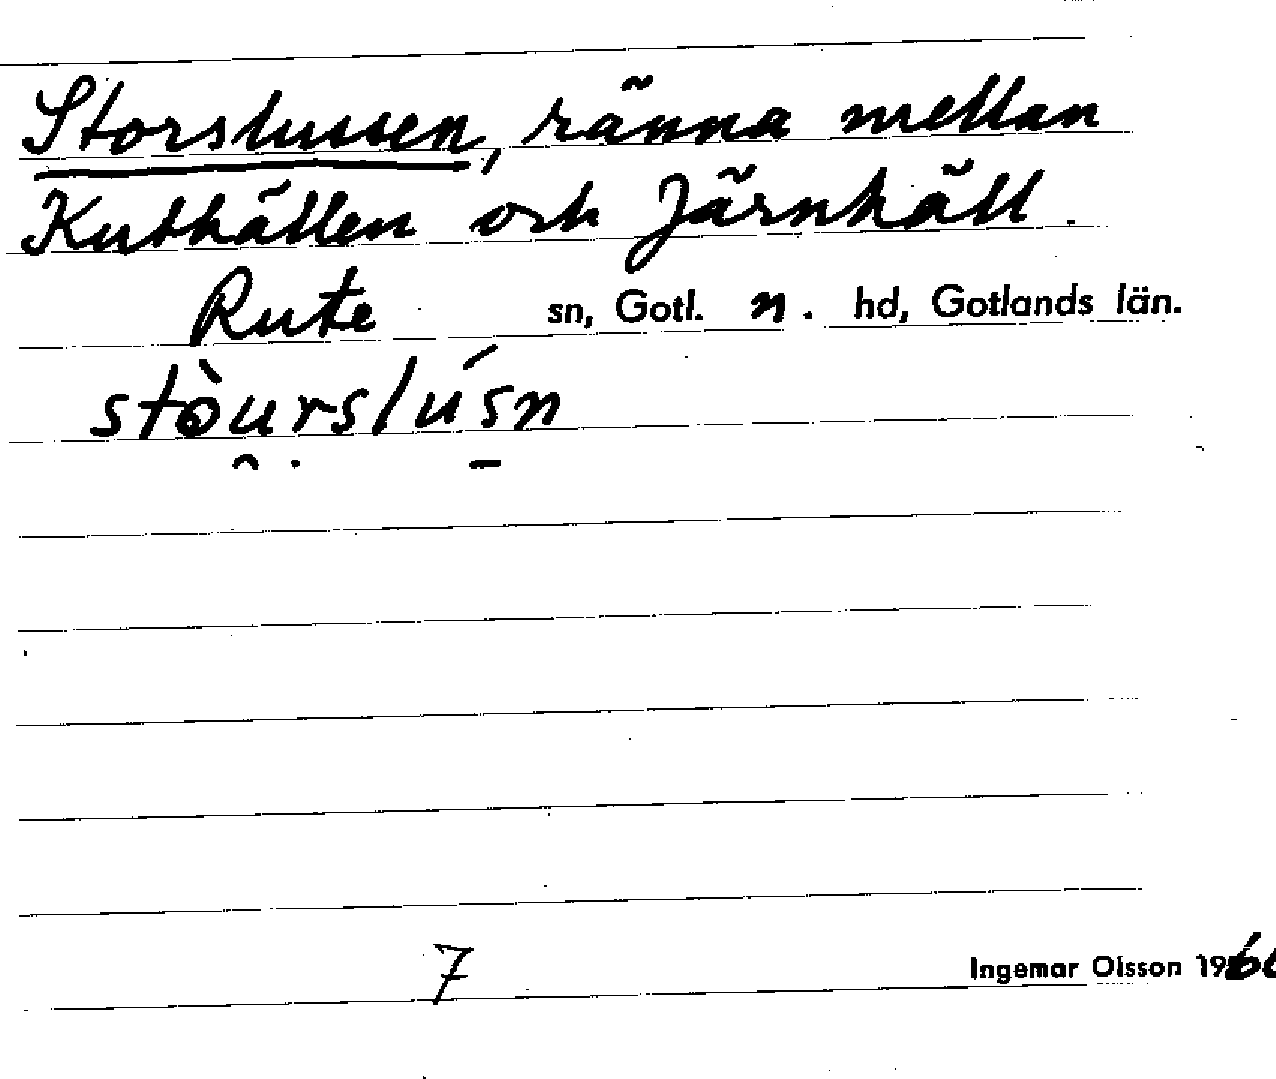 Storslussen, ränna mellan
Kuthällen och Järnhäll.
Rute sn, Gotl. n. hd, Gotlands län.
stòurslúsn
7
Ingemar Olsson 1960